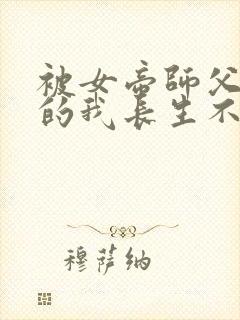 被女帝師父
的我長生不
穆薩納